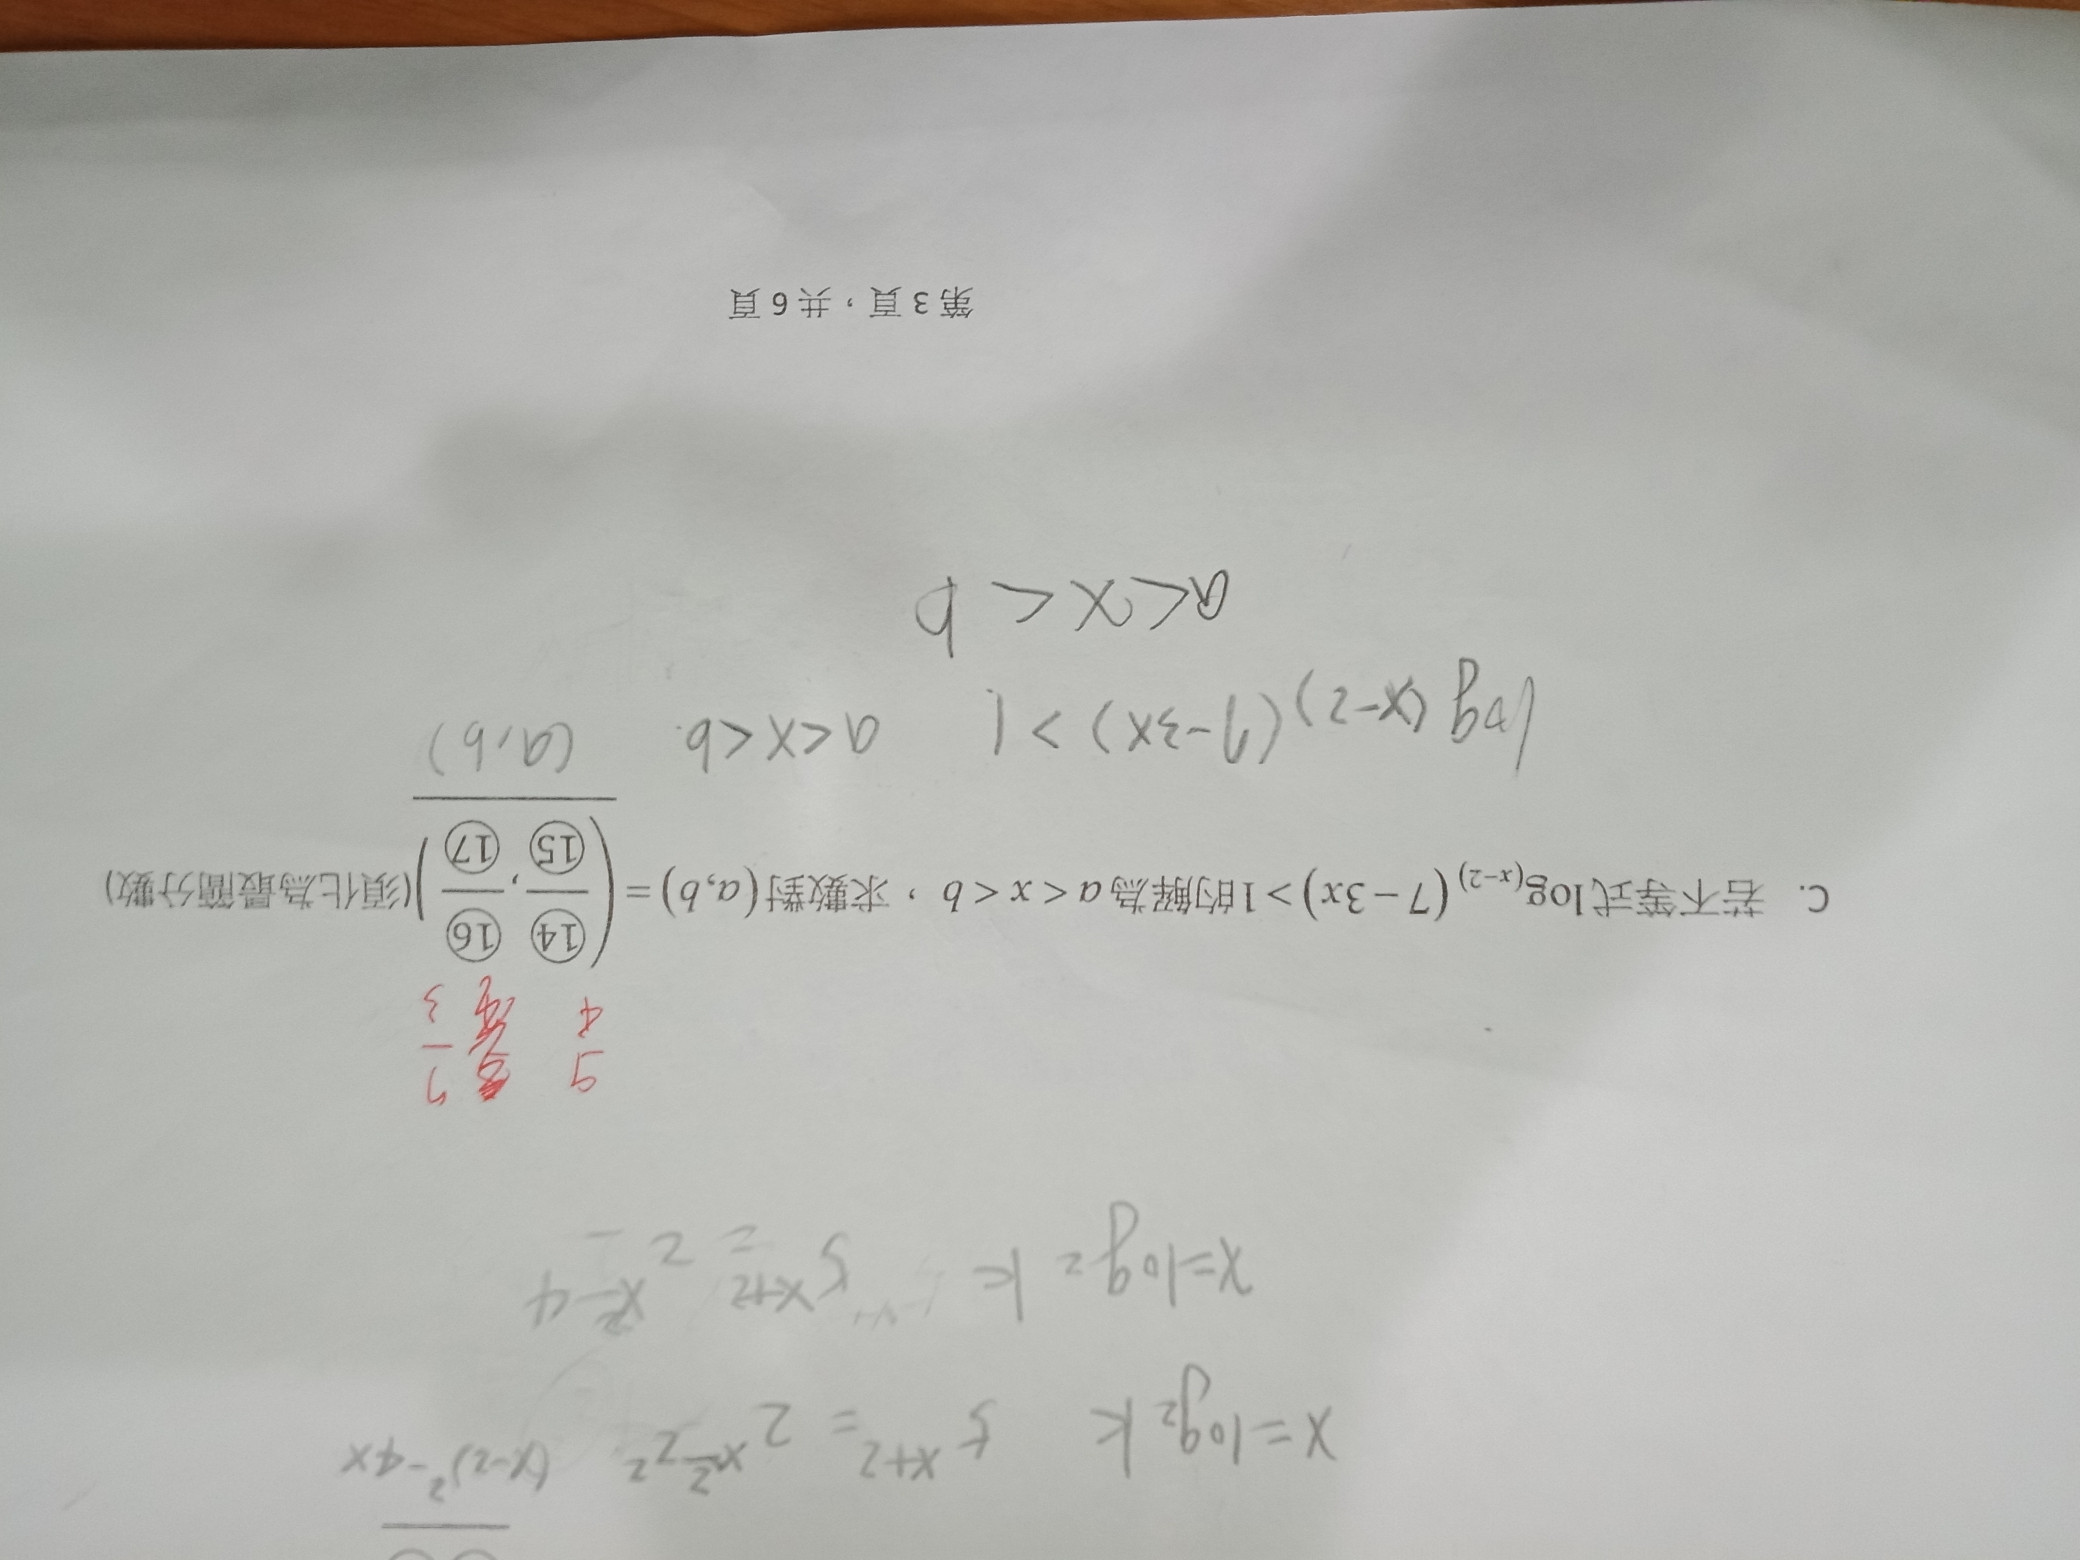 (x-2)²-4x
x=log₂k 5^(x+2) = 2^(x²-2²)
x=log₂k 5^(x+2) = 2^(x²-4)
9 7
4 3
C. 若不等式log(x−2)(7−3x)>1的解為a<x<b,求數對(a,b)=(⑭/⑮,⑯/⑰)(須化為最簡分數)
log(x-2)(7-3x)>1 a<x<b. (a,b)
a<x<b
第3頁,共6頁